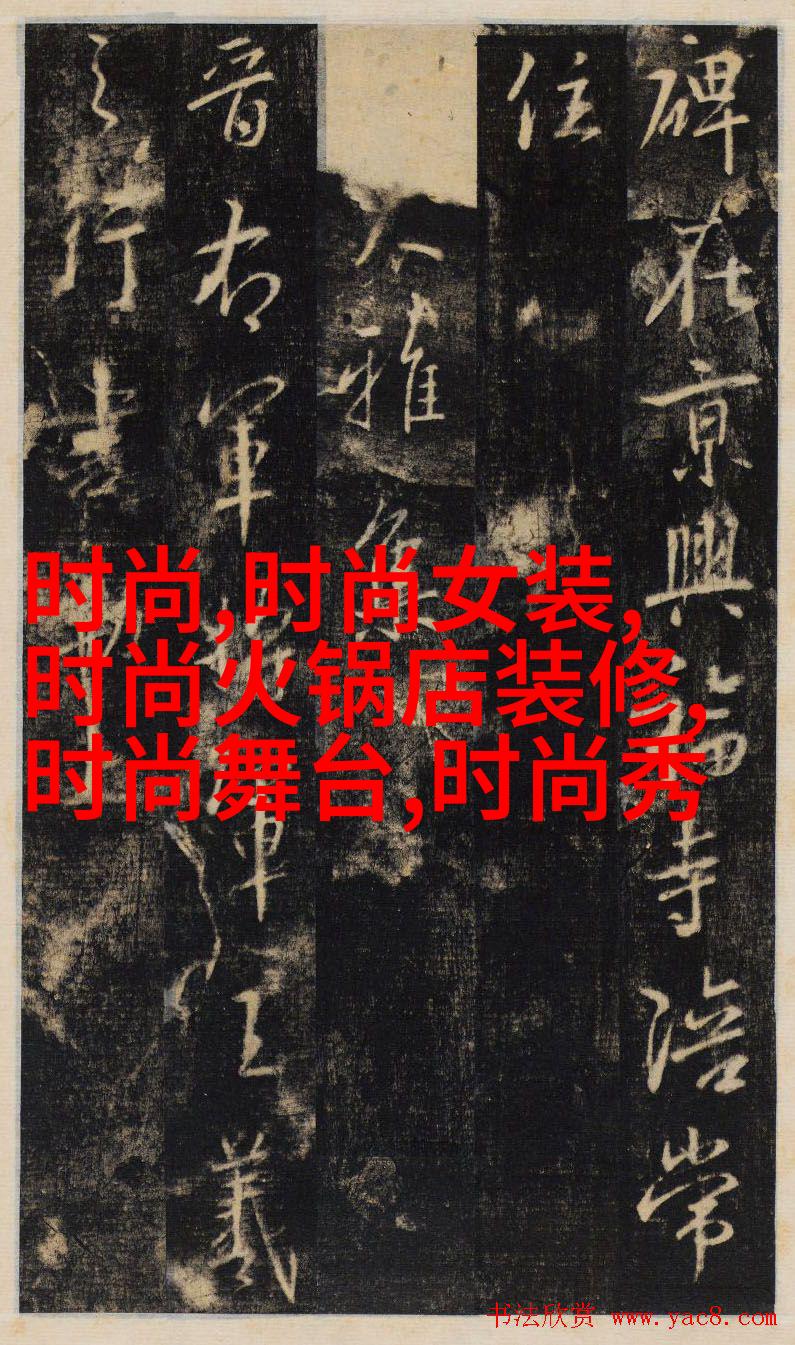 碑在京興福寺陪常
住
大雅集
晋右軍將軍王羲
之行書
时尚,时尚女装,
时尚火锅店装修,
时尚舞台,时尚秀
书法欣赏 www.yac8.com